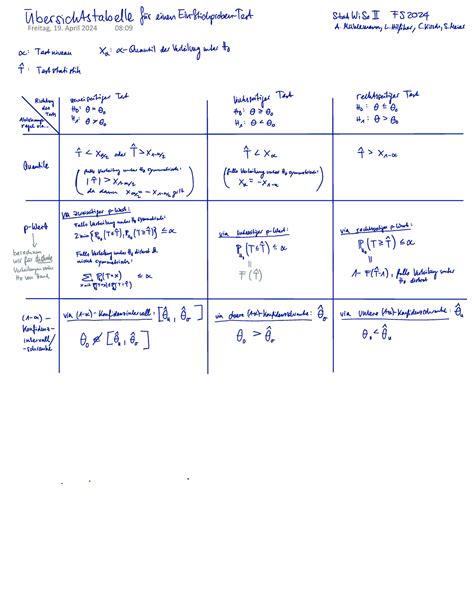 Übersichtstabelle für einen Einstichproben-Test
Stat WiSo II FS2024
Freitag, 19. April 2024 08:09
α: Testniveau
X_α: α-Quantil der Verteilung unter H₀
T̂: Teststatistik
Richtung des Tests
Ablehnungsregel via...
zweiseitiger Test
H₀: θ = θ₀
H₁: θ ≠ θ₀
linksseitiger Test
H₀: θ ≥ θ₀
H₁: θ < θ₀
rechtsseitiger Test
H₀: θ ≤ θ₀
H₁: θ > θ₀
Quantile
T̂ < X_α/2 oder T̂ > X_1-α/2
(falls Verteilung unter H₀ symmetrisch:
|T̂| > X_1-α/2
da dann X_α/2 = -X_1-α/2 gilt)
T̂ < X_α
(falls Verteilung unter H₀ symmetrisch:
X_α = -X_1-α)
T̂ > X_1-α
p-Wert
berechnen wir für
Verteilungen unter H₀ von Hand
via zweiseitiger p-Wert:
Falls Verteilung unter H₀ symmetrisch:
2 min{P_θ₀(T≤T̂), P_θ₀(T≥T̂)} ≤ α
Falls Verteilung unter H₀ diskret & nicht symmetrisch:
≤ α
via linksseitiger p-Wert:
P_θ₀(T ≤ T̂) ≤ α
=
F(T̂)
via rechtsseitiger p-Wert:
P_θ₀(T ≥ T̂) ≤ α
=
1 - F(T̂-1), falls Verteilung unter H₀ diskret
(1-α)-Konfidenzintervall/-schranke
via (1-α)-Konfidenzintervall: [θ̂_u, θ̂_o]
θ₀ ∉ [θ̂_u, θ̂_o]
via obere (1-α)-Konfidenzschranke: θ̂_o
θ₀ > θ̂_o
via untere (1-α)-Konfidenzschranke: θ̂_u
θ₀ < θ̂_u